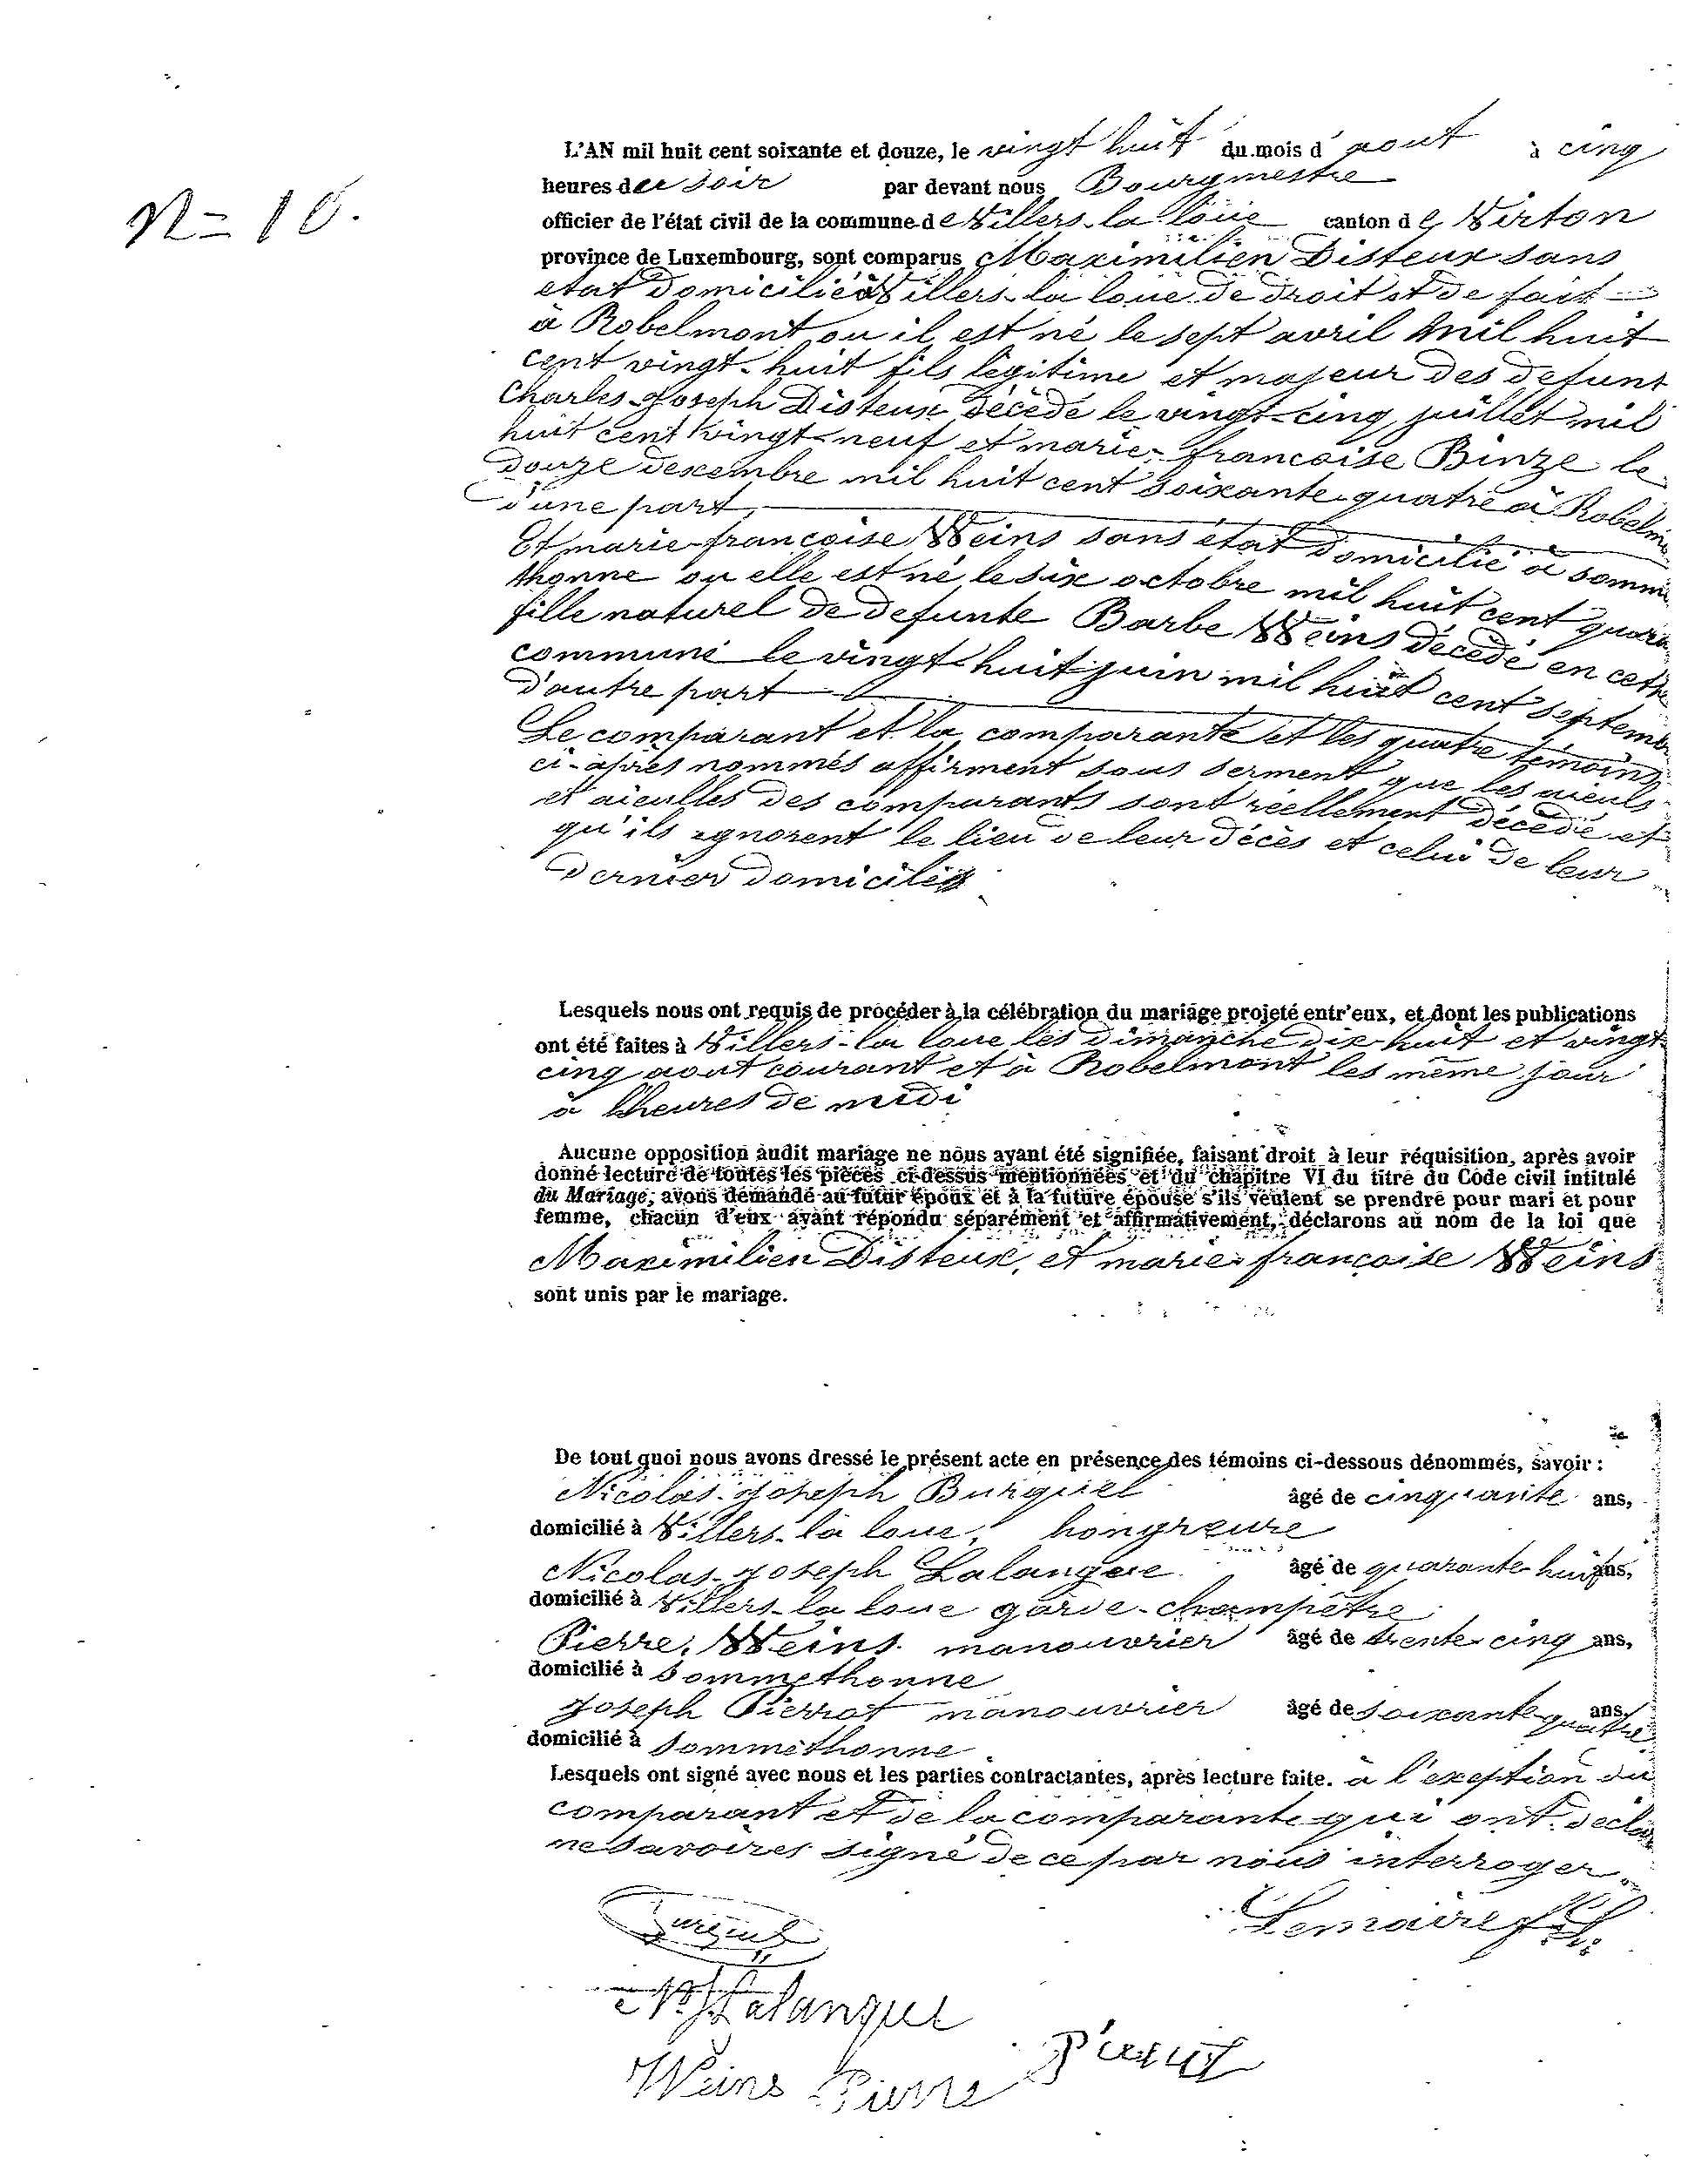 N= 10.
L'AN mil huit cent soixante et douze, le vingt huit du mois d'aout à cinq
heures du soir par devant nous Bourgmestre
officier de l'état civil de la commune de Villers-la-loue canton de Virton
province de Luxembourg, sont comparus Maximilien Disteux sans
etat domicilié à Villers-la loue de droit et de fait
à Robelmont ou il est né le sept avril mil huit
cent vingt-huit fils legitime et majeur des defunt
Charles-Joseph Disteux décédé le vingt-cinq juillet mil
huit cent vingt-neuf et marie-francoise Binze le
douze decembre mil huit cent soixante-quatre à Robelm
d'une part,
Et marie-françoise Weins sans état domicilié à somme
thonne ou elle est né le six octobre mil huit cent quara
fille naturel de defunte Barbe Weins décédé en cette
commune le vingt-huit juin mil huit cent septem
d'autre part
Le comparant et la comparante et les quatre témoins
ci-après nommés affirment sous serment que les aieuls
et aieulles des comparants sont réellement décédé et
qu'ils ignorent le lieu de leur décès et celui de leur
dernier domicilié
Lesquels nous ont requis de procéder à la célébration du mariage projeté entr'eux, et dont les publications
ont été faites à Villers-la loue les dimanche dix-huit et vingt
cinq aout courant et à Robelmont les même jour
à heures de midi
Aucune opposition audit mariage ne nous ayant été signifiée, faisant droit à leur réquisition, après avoir
donné lecture de toutes les pièces ci-dessus mentionnées et du chapitre VI du titre du Code civil intitulé
du Mariage, avons demandé au futur époux et à la future épouse s'ils veulent se prendre pour mari et pour
femme, chacun d'eux ayant répondu séparément et affirmativement, déclarons au nom de la loi que
Maximilien Disteux, et marie-françoise Weins
sont unis par le mariage.
De tout quoi nous avons dressé le présent acte en présence des témoins ci-dessous dénommés, savoir :
Nicolas-Joseph Burquel âgé de cinquante ans,
domicilié à Villers-la loue, hongreure
Nicolas-Joseph Lalangue âgé de quarante-huit ans,
domicilié à Villers-la loue garde-champêtre
Pierre Weins manouvrier âgé de trente-cinq ans,
domicilié à sommethonne
Joseph Pierrot manouvrier âgé de soixante-quatre ans,
domicilié à sommethonne
Lesquels ont signé avec nous et les parties contractantes, après lecture faite. à l'exeption du
comparant et de la comparante qui ont déclar
ne savoires signé de ce par nous interroger.
Burquel Lemaire
N. J. Lalangue
Weins Pierre Pierrot